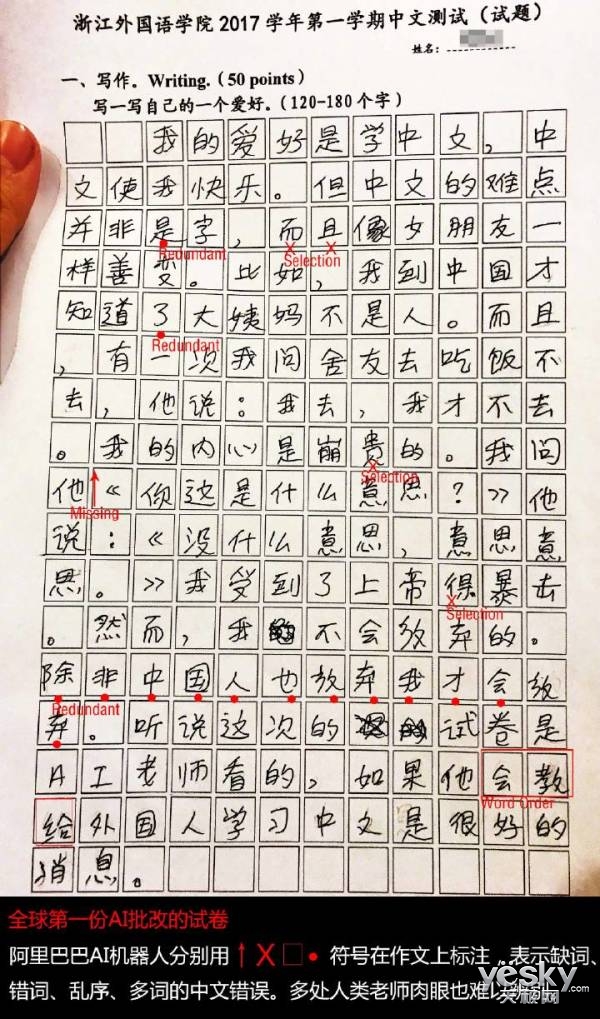 浙江外国语学院 2017 学年第一学期中文测试（试题）
姓名：
一、写作。Writing.（50 points）
写一写自己的一个爱好。（120-180 个字）
我的爱好是学中文，中
文使我快乐。但中文的难点
并非是字，而且像女朋友一
Redundant
Selection
样善变。比如，我到中国才
知道了大姨妈不是人。而且
Redundant
，有一次我问舍友去吃饭不
去，他说：我去，我才不去
。我的内心是崩贵的。我问
Selection
他《你这是什么意思？》他
Missing
说：《没什么意思，意思意
思。》我受到了上帝得暴击
Selection
。然而，我不会放弃的。
除非中国人也放弃我才会放
Redundant
弃。听说这次的试卷是
AI老师看的，如果他会教
Word Order
给外国人学习中文是很好的
消息。
全球第一份AI批改的试卷
阿里巴巴AI机器人分别用↑X□● 符号在作文上标注，表示缺词、
错词、乱序、多词的中文错误。多处人类老师肉眼也难以
yesky
天极网